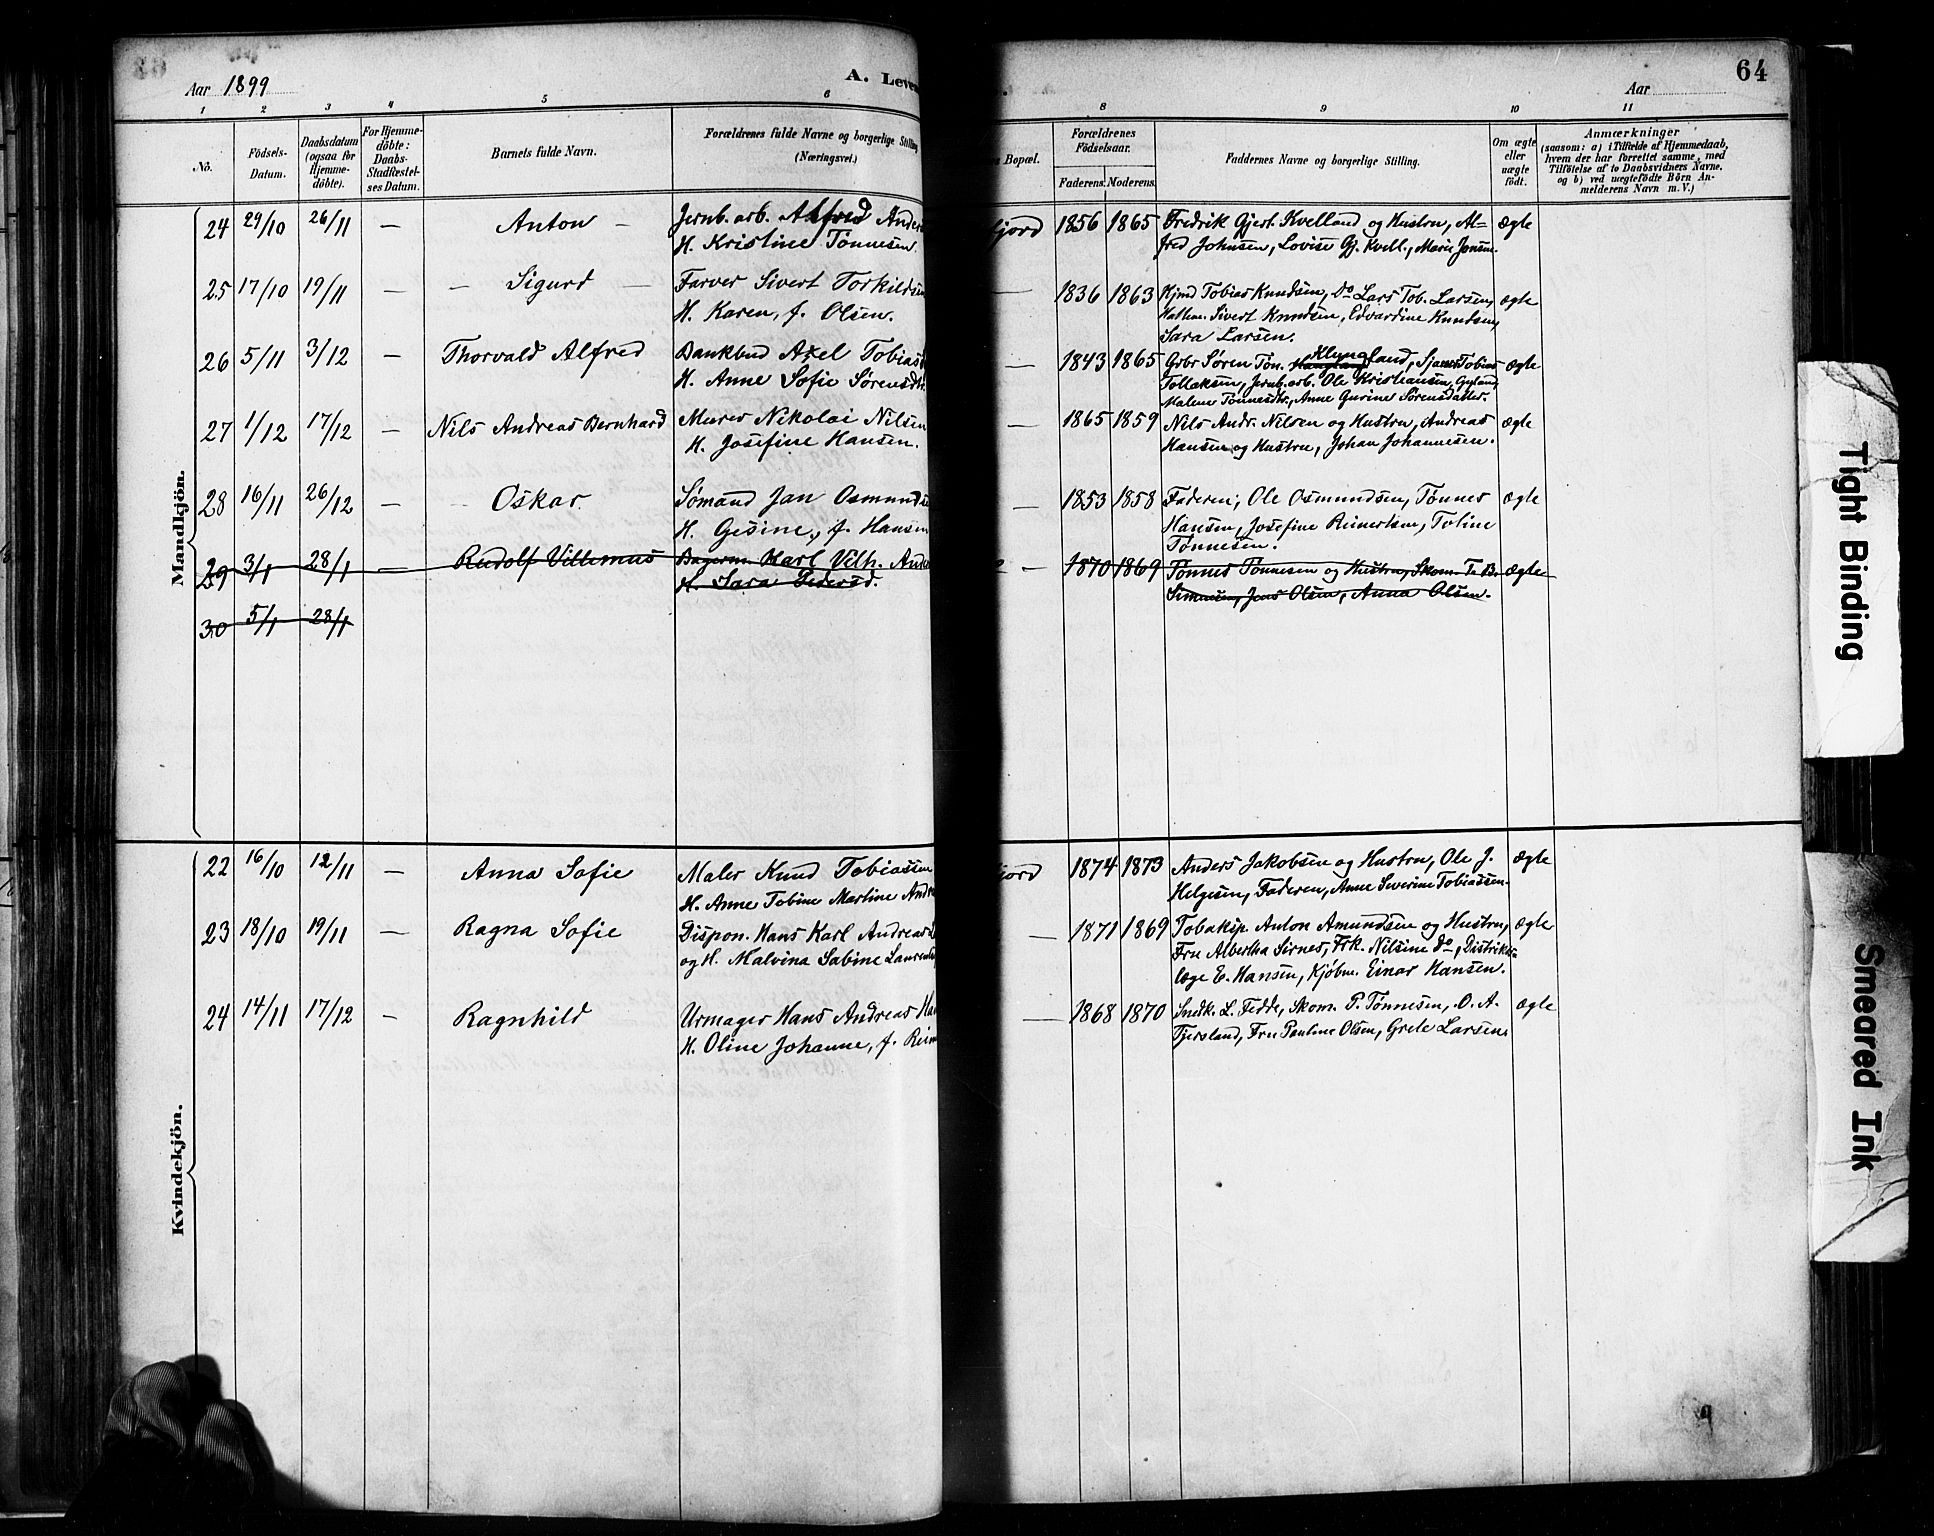 Aar 1899
A. Leven
64
Aar
1 2 3 4 5 6 8 9 10 11
No.
Födsels-
Datum.
Daabsdatum
(ogsaa for
Hjemme-
döbte).
For Hjemme-
döbte:
Daabs-
Stadfæstel-
ses Datum.
Barnets fulde Navn.
Forældrenes fulde Navne og borgerlige Stilling
(Næringsvei.)
s Bopæl.
Forældrenes
Födselsaar.
Faderens. Moderens.
Faddernes Navne og borgerlige Stilling.
Om ægte
eller
uægte
födt.
Anmærkninger
(saasom: a) i Tilfælde af Hjemmedaab,
hvem der har forrettet samme, med
Tilföielse af to Daabsvidners Navne,
og b) ved uægtefödte Börn An-
melderens Navn m. V.)
Mandkjön.
24 29/10 26/11 — Anton — Jernb. arb. Alfred Anders fjord 1856 1865 Fredrik Gjert. Kvelland og Hustru, Al- ægte
H. Kristine Tönnesen. fred Johnsen, Lovise Gj. Kvell., Marie Jensen.
25 17/10 19/11 — Sigurd — Farver Sivert Torkilds — 1836 1863 Kjmd Tobias Knudsen, Do Lars Tob. Larsen, ægte
H. Karen, f. Olsen. Sivert Knudsen, Edvardine Knudsen,
Sara Larsen.
26 5/11 3/12 — Thorvald Alfred Bankbud Axel Tobias — 1843 1865 Grbr Sören Tön. Klungland, Tobias ægte
H. Anne Sofie Sörensdtr Tollaksen, Jernb. arb. Ole Kristiansen,
Malene Tönnesdtr., Anne Gurine Sörensdatter.
27 1/12 17/12 — Nils Andreas Bernhard Murer Nikolai Nilsen — 1865 1859 Nils Andr. Nilsen og Hustru, Andreas ægte
H. Josefine Hansen. Hansen og Hustru, Johan Johannesen.
28 16/11 26/12 — Oskar Sömand Jan Osmunds — 1853 1858 Faderen, Ole Osmundsen, Tönnes ægte
H. Gesine, f. Hansen Hansen, Josefine Reinertsen, Toline
Tönnesen.
29 3/1 28/1 — Rudolf Villemus Bagerm. Karl Vilh. Ande — 1870 1869 Tönnes Tönnesen og Hustru, Skom. T. B. ægte
H. Sara Pedersd. Simonsen, Jens Olsen, Anna Olsen.
30 5/1 28/1
Kvindekjön.
22 16/10 12/11 — Anna Sofie Maler Knud Tobiassen fjord 1874 1873 Anders Jakobsen og Hustru, Ole J. ægte
H. Anne Tobine Martine Andre Helgesen, Faderen, Anne Severine Tobiassen.
23 18/10 19/11 — Ragna Sofie Dispon. Hans Karl Andreas — 1871 1869 Tobaksp. Anton Amundsen og Hustru, ægte
og H. Malvina Sabine Fru Albertha Sirnes, Frk. Nilsine Do, Distrikts-
læge E. Hansen, Kjöbm. Einar Hansen.
24 14/11 17/12 — Ragnhild Urmager Hans Andreas Ha — 1868 1870 Snedk. L. Fedde, Skom. P. Tönnesen, O. A. ægte
H. Oline Johanne, f. Reim Tjersland, Fru Pauline Olsen, Grete Larsen.
Tight Binding
Smeared Ink